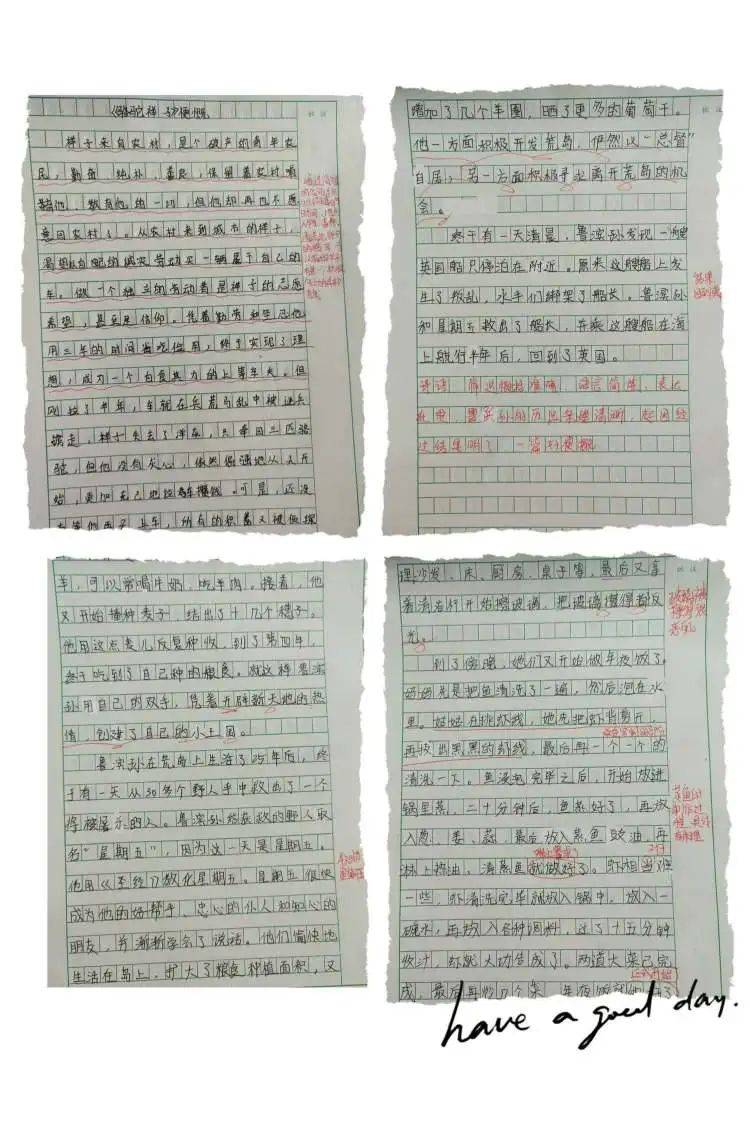 《骆驼祥子》梗概
祥子来自农村，是个破产的青年农
民，勤劳、纯朴、善良，保留着农村哺
育他、教育他的一切，但他却再也不愿
意回农村了。从农村来到城市的祥子，
渴望以自己的诚实劳动买一辆属于自己的
车。做一个独立的劳动者是祥子的志愿
希望，甚至是信仰。凭着勤劳和坚忍他
用三年的时间省吃俭用，终于实现了理
想，成为一个自食其力的上等车夫。但
刚拉了半年，车就在兵荒马乱中被逃兵
掳走，祥子失去了洋车，只牵回三匹骆
驼，但他没有灰心，依然倔强地从头开
始，更加克己地拉车攒钱。可是，还没
有等他再买上车，所有的积蓄又被侦探
增加了几个羊圈，晒了更多的葡萄干。
他一方面积极开发荒岛，俨然以“总督”
自居；另一方面积极寻求离开荒岛的机
会。
终于有一天清晨，鲁滨孙发现一艘
英国船只停泊在附近。原来这艘船上发
生了叛乱，水手们绑架了船长。鲁滨孙
和星期五救出了船长，并乘这艘船在海
上航行半年后，回到了英国。
结果
导语
过结果明了
车，可以常喝牛奶，吃羊肉。接着，他
又开始播种麦子，结出了十几个穗子。
他用这点麦儿反复种收，到了第四年，
终于吃到了自己种的粮食。就这样鲁滨
孙用自己的双手，凭着开辟新天地的热
情，创建了自己的小王国。
鲁滨孙在荒岛上生活了25年后，终
于有一天从30多个野人手中救出了一个
将被屠杀的人。鲁滨孙给获救的野人取
名“星期五”，因为这一天是星期五。
他用《圣经》教化星期五。星期五很快
成为他的好帮手、忠心的仆人和知心的
朋友，并渐渐学会了说话。他们愉快地
生活在岛上，扩大了粮食种植面积，又
理沙发、床、厨房、桌子等，最后又拿
着清洁剂开始擦玻璃，把玻璃擦得直反
光。
到了傍晚，她们又开始做年夜饭了。
妈妈先是把鱼清洗了一遍，然后泡在水
里。姑姑在挑虾线，她先把虾背剪开，
再拔出黑黑的虾线，最后再一个一个的
清洗一下。鱼浸泡完毕之后，开始放进
锅里蒸，二十分钟后，鱼蒸好了，再放
入葱、姜、蒜，最后放入蒸鱼豉油，再
淋上热油，清蒸鱼就做好了。虾相当难
一些，虾清洗完毕就放入锅中，放入一
碗水，再放入各种调料，过了十五分钟
收汁，虾就大功告成了。两道大菜已完
成，最后再炒几个菜，年夜饭就
have a good day.